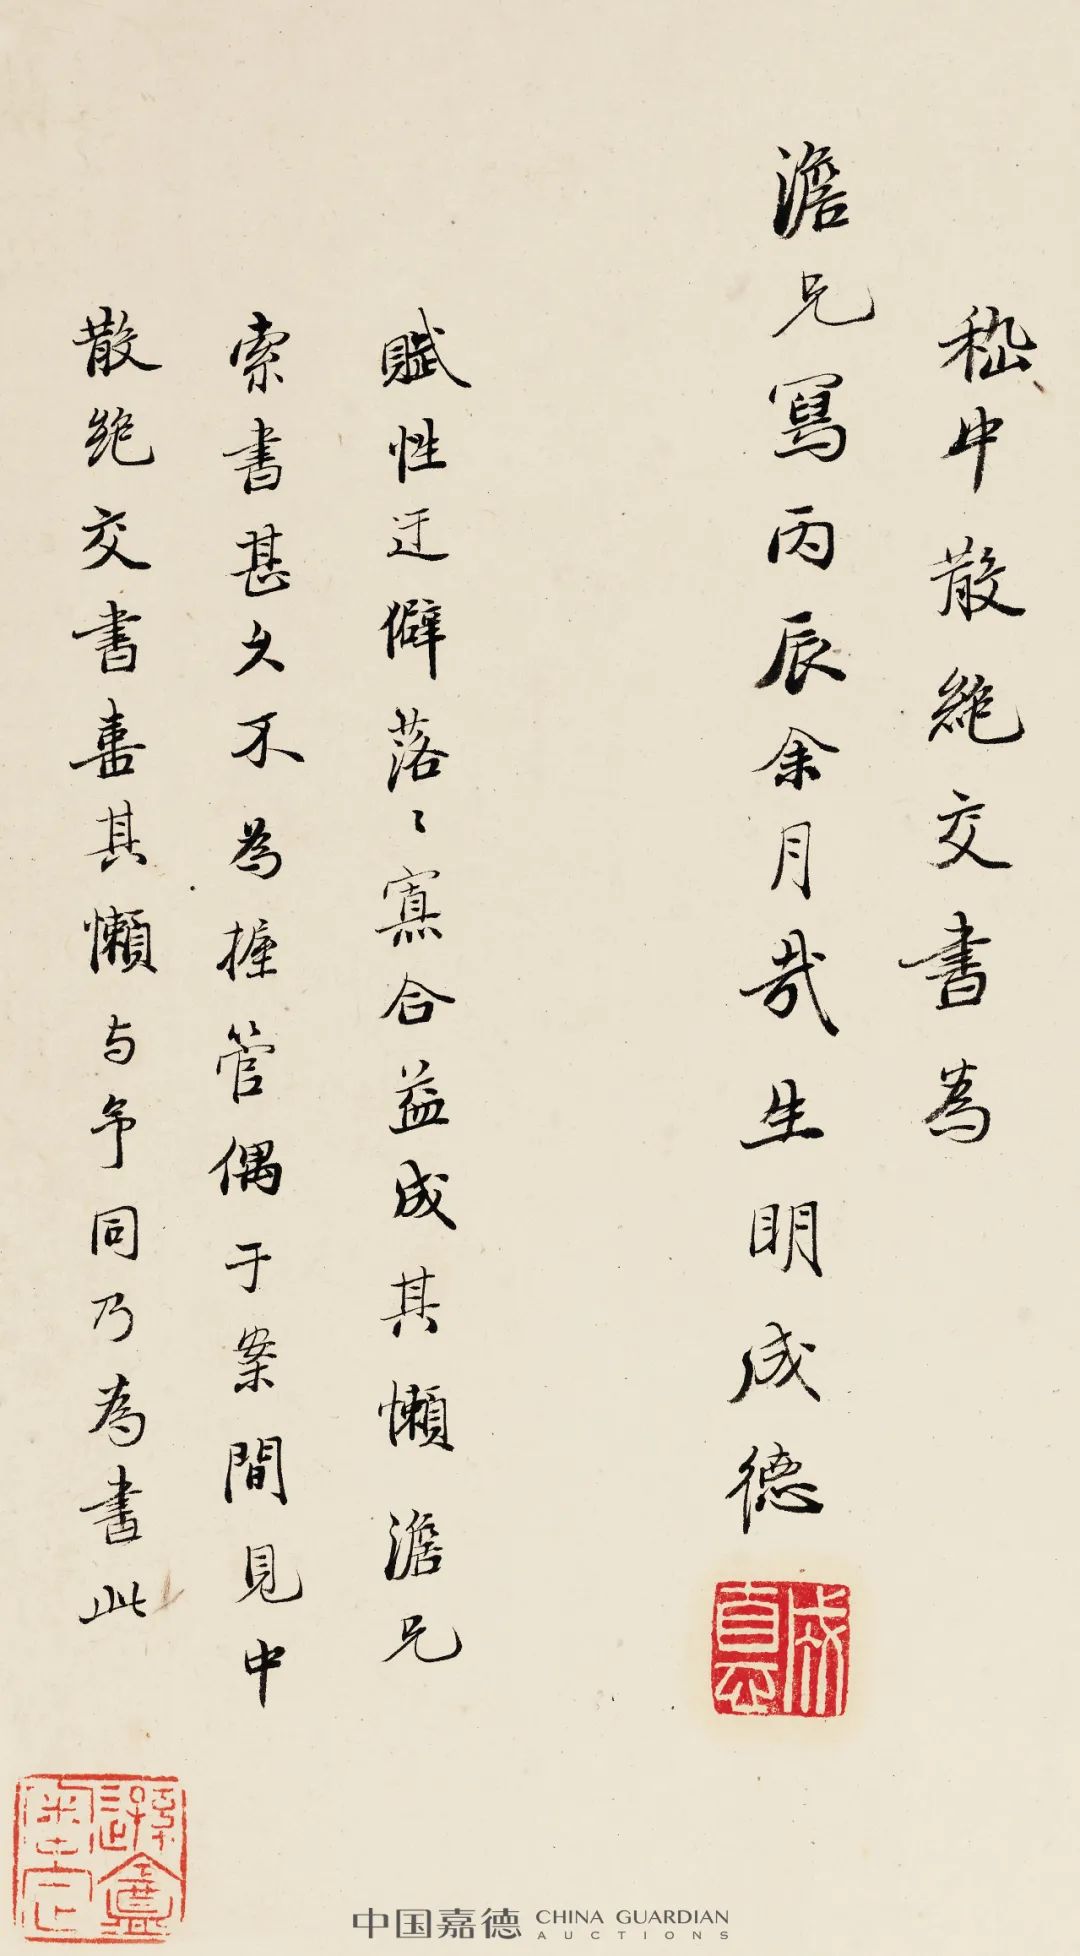 嵇中散絶交書為
澹兄寫丙辰余月哉生明成德
成德
賦性迂僻落〻寡合益成其懶澹兄
索書甚久不為握管偶于案間見中
散絶交書喜其懶与予同乃為書此
中国嘉德 CHINA GUARDIAN
AUCTIONS